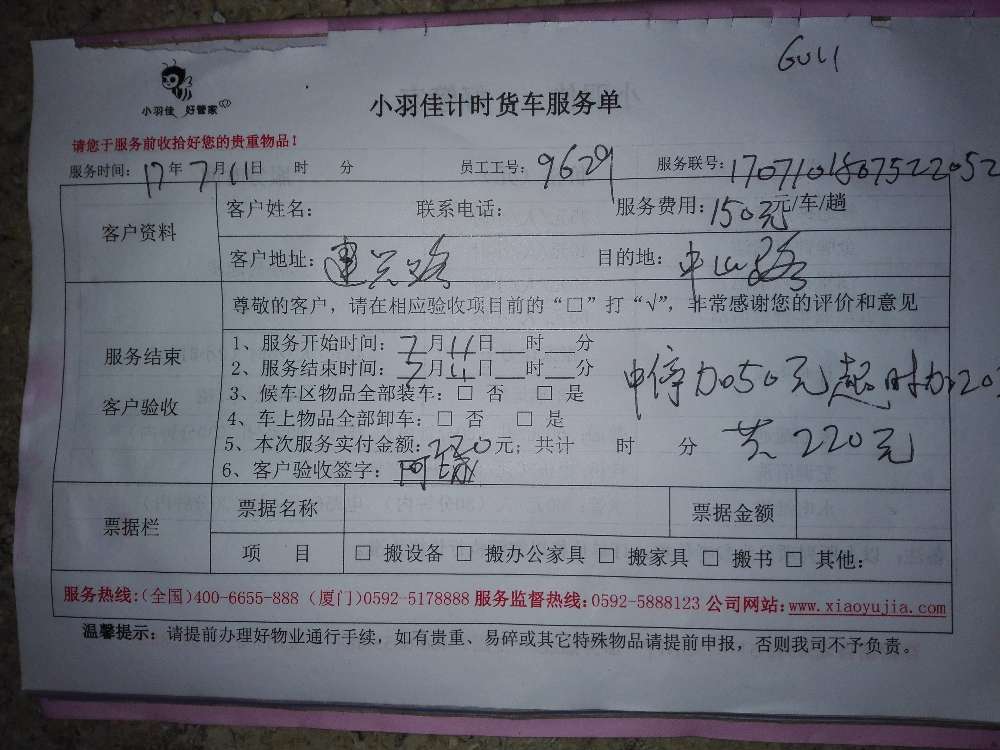 GULI
小羽佳 好管家
小羽佳计时货车服务单
请您于服务前收拾好您的贵重物品！
服务时间：17年7月11日 时 分 员工工号：9629 服务联号：1707101807522052
客户资料
客户姓名： 联系电话： 服务费用：150元元/车/趟
客户地址：建兴路 目的地：中山路
尊敬的客户，请在相应验收项目前的“□”打“√”，非常感谢您的评价和意见
服务结束
客户验收
1、服务开始时间：7月11日__时__分
2、服务结束时间：7月11日__时__分
3、候车区物品全部装车：□ 否 □ 是
4、车上物品全部卸车：□ 否 □ 是
5、本次服务实付金额：220元；共计 时 分
6、客户验收签字：
中停加50元超时加20
共220元
票据栏
票据名称 票据金额
项 目 □ 搬设备 □ 搬办公家具 □ 搬家具 □ 搬书 □ 其他：
服务热线：(全国)400-6655-888 (厦门)0592-5178888 服务监督热线：0592-5888123 公司网站：www.xiaoyujia.com
温馨提示：请提前办理好物业通行手续，如有贵重、易碎或其它特殊物品请提前申报，否则我司不予负责。